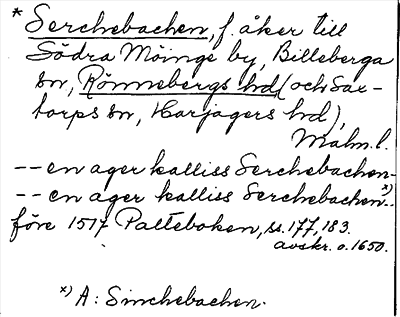 * Serchebachen, f. åker till
Södra Möinge by, Billeberga
sn, Rönnebergs hd (och Sax-
torps sn, Harjagers hd),
Malm. l.
-- en ager kalliss Serchebachen-
-- en ager kalliss Serchebachen x)..
före 1517 Palteboken, ss. 177, 183.
avskr. o. 1650.
x) A: Sinchebachen.